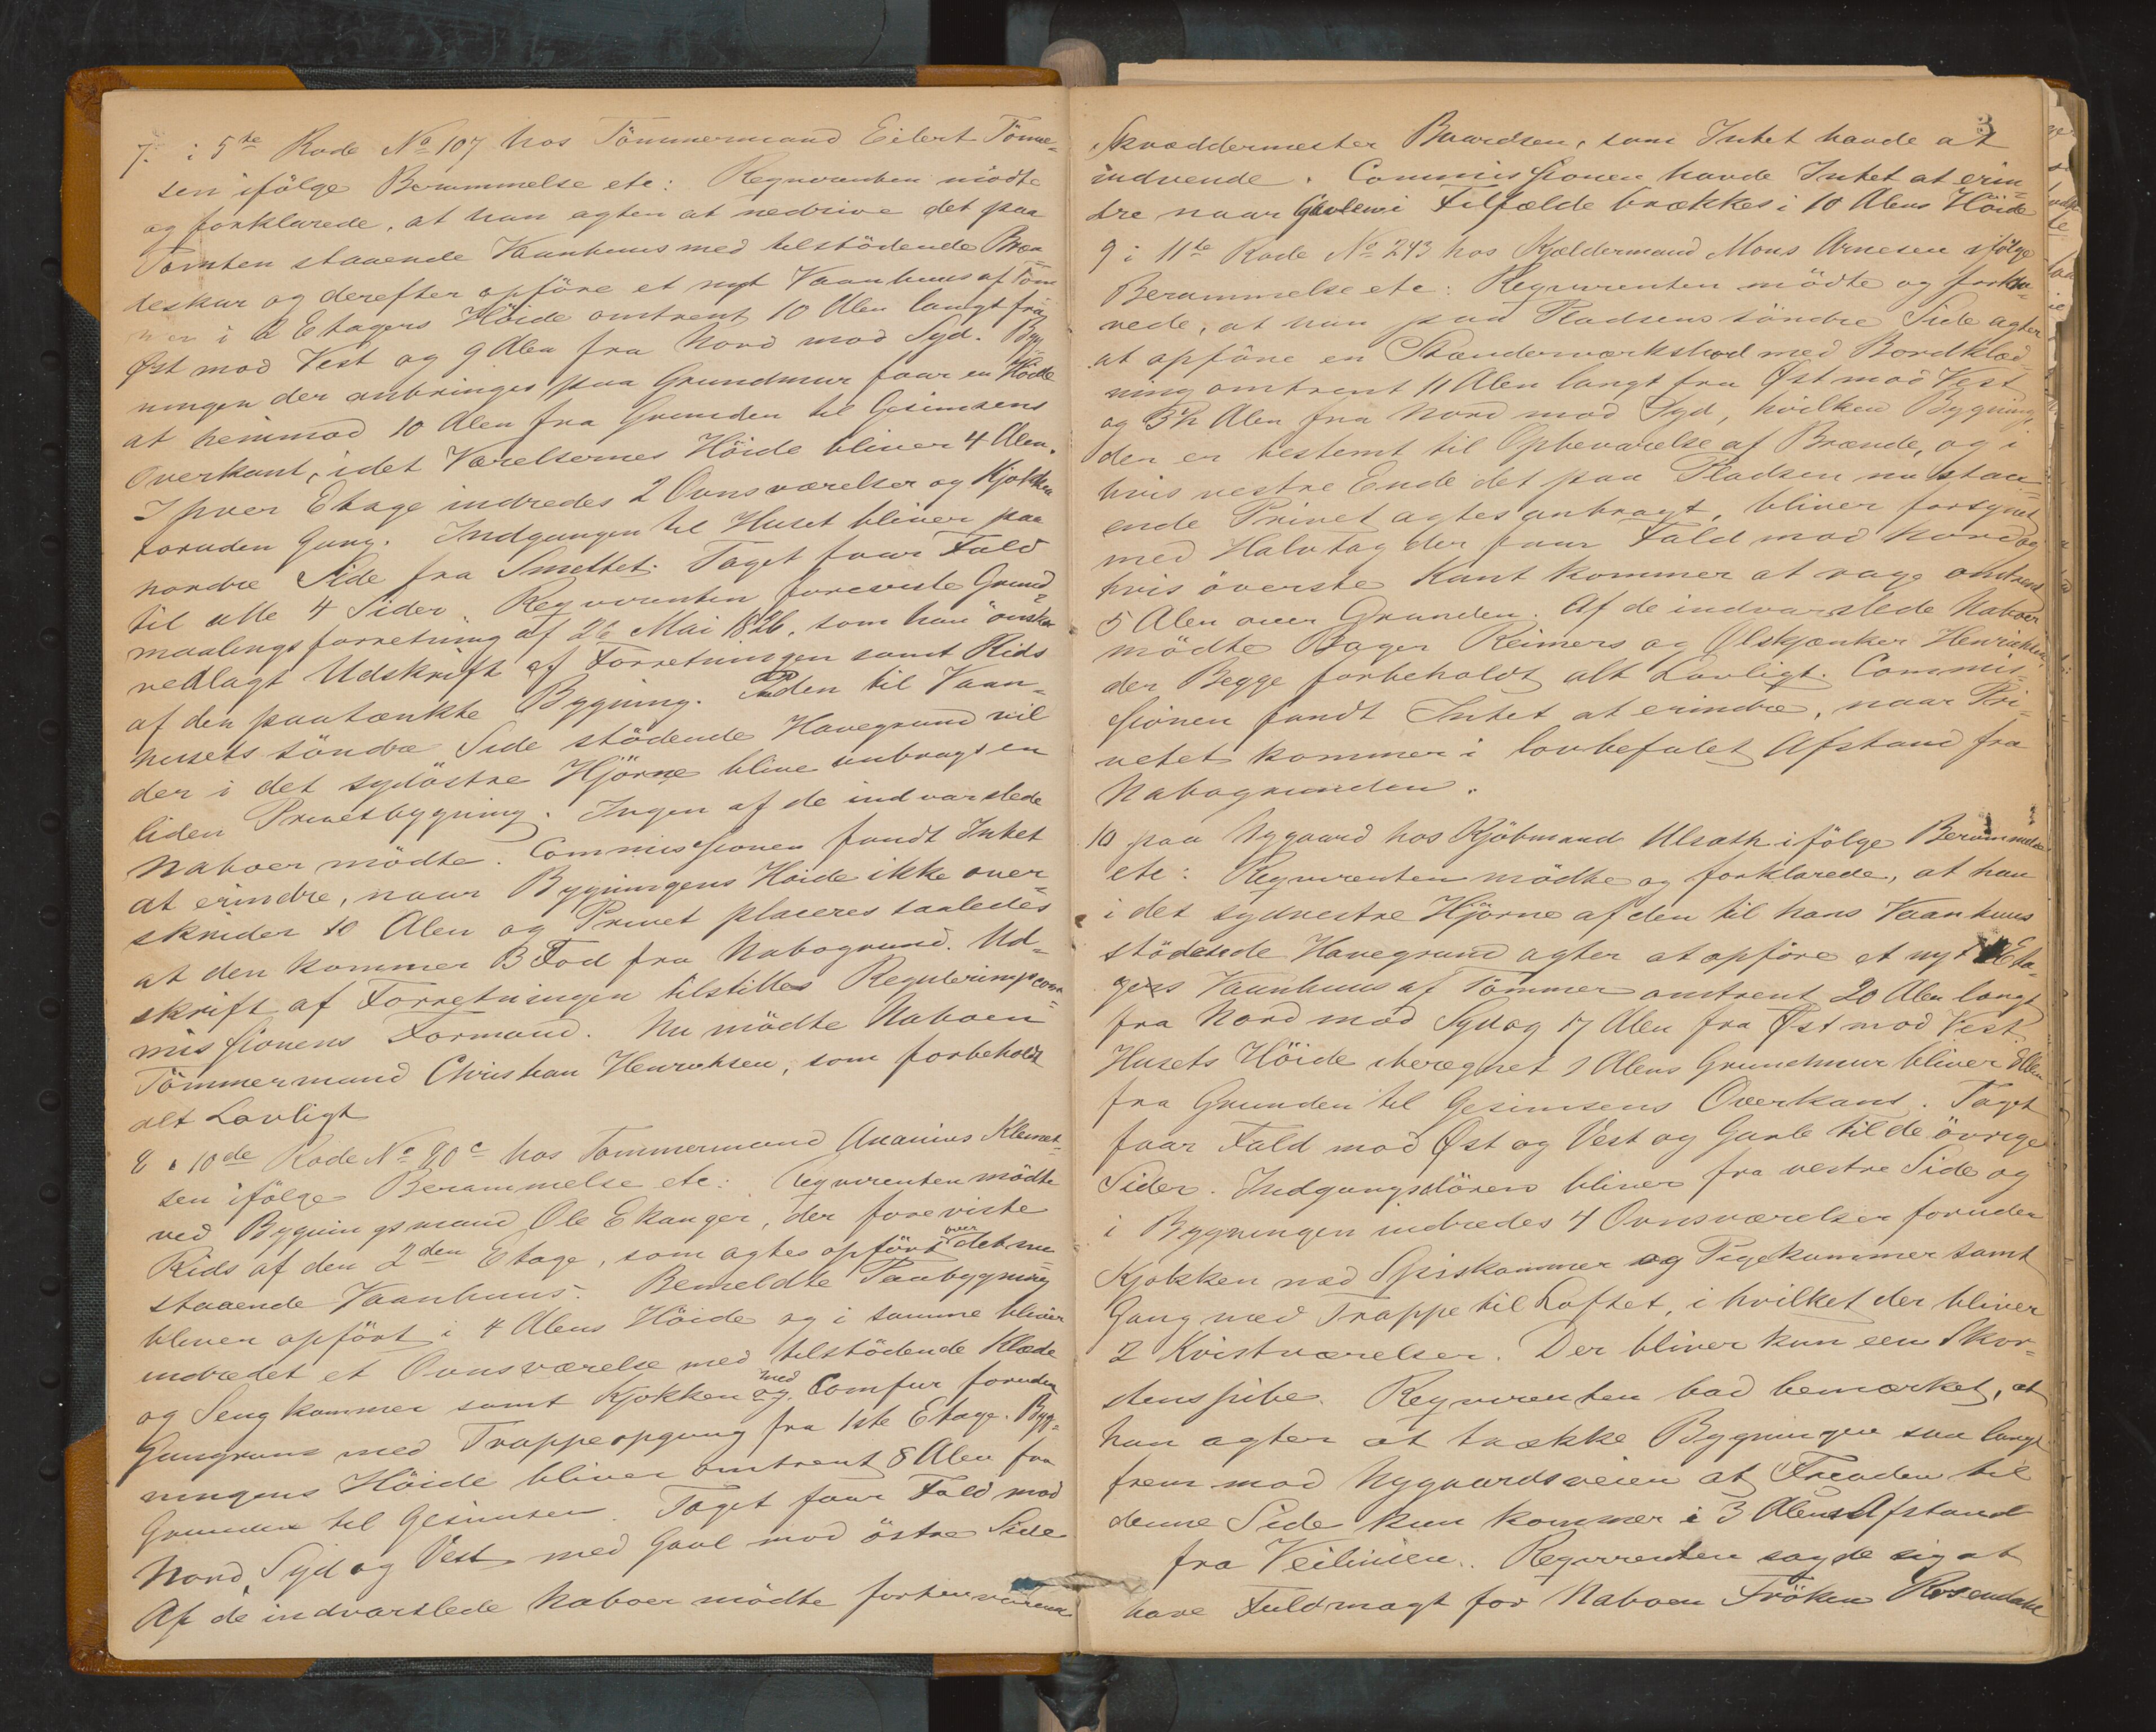 7. i 5te Rode No 107 hos Tömmermand Eilert Tönne-
sen ifölge Berammelse etc: Reqvirenten mödte
og forklarede, at han agter at nedrive det paa
Tomten staaende Vaanhuus med tilstödende Bræn-
deskur og derefter opföre et nyt Vaanhuus af Töm
mer i 2 Etagers Höide omtrent 10 Alen langt fra
Øst mod Vest og 9 Alen fra Nord mod Syd. Byg
ningen der anbringes paa Grundmur faar en Höide
at henimod 10 Alen fra Grunden til Gesimsens
Overkant, idet Værelsernes Höide bliver 4 Alen.
I hver Etage indredes 2 Ovnsværelser og Kjøkken
foruden Gang. Indgangen til Huset bliver paa
nordre Side fra Smettet. Taget faar Fald
til alle 4 Sider. Reqvirenten foreviste Grund-
maalingsforretning af 26 Mai 1826, som han önsker
vedlagt Udskrift af Forretningen samt Rids
af den paatænkte Bygning. Paa den til Vaan-
husets söndre Side stödende Havegrund vil
der i det sydöstre Hjörne blive anbragt en
liden Privetbygning. Ingen af de indvarslede
Naboer mödte. Commissionen fandt Intet
at erindre, naar Bygningens Höide ikke over-
skrider 10 Alen og Privet placeres saaledes
at den kommer 3 Fod fra Nabogrund. Ud-
skrift af Forretningen tilstilles Reguleringscom-
missionens Formand. Nu mödte Naboen
Tömmermand Christian Henriksen, som forbeholdt
alt Lovligt
8 i 10de Rode No 90c hos Tömmermand Ananias Klemet-
sen ifölge Berammelse etc: Reqvirenten mödte
ved Bygningsmand Ole Ekanger, der foreviste
Rids af den 2den Etage, som agtes opfört over det nu
staaende Vaanhuus. Bemeldte Paabygning
bliver opfört i 4 Alens Höide og i samme bliver
indredet et Ovnsværelse med tilstödende Klæde
og Sengkammer samt Kjøkken med Comfur foruden
Gangrum med Trappeopgang fra 1ste Etage. Byg-
ningens Höide bliver omtrent 8 Alen fra
Grunden til Gesimsen. Taget faar Fald mod
Nord, Syd og Vest med Gavl mod östre Side
Af de indvarslede Naboer mödte forhenværende
3
Skræddermester Baardsen, som Intet havde at
indvende. Commissionen havde Intet at erin-
dre naar Gavlen i Tilfælde brækkes i 10 Alens Höide
9 i 11te Rode No 243 hos Kjældermand Mons Arnesen ifölge
Berammelse etc: Reqvirenten mödte og forkla-
rede, at han paa Pladsens söndre Side agter
at opföre en Stænderværksbod med Bordklæd
ning omtrent 11 Alen langt fra Øst mod Vest
og 3½ Alen fra Nord mod Syd, hvilken Bygning,
der er bestemt til Opbevarelse af Brænde, og i
hvis vestre Ende det paa Pladsen nu staa-
ende Privet agtes anbragt, bliver forsynet
med Halvtag der faar Fald mod Nord og
hvis överste Kant kommer at rage omtrent
5 Alen over Grunden. Af de indvarslede Naboer
mödte Bager Reimers og Ølskjænker Henriksen,
der Begge forbeholdt alt Lovligt. Commis-
sionen fandt Intet at erindre, naar Pri-
vetet kommer i lovbefalet Afstand fra
Nabogrunden.
10 paa Nygaard hos Kjöbmand ifölge Berammelse
etc: Reqvirenten mödte og forklarede, at han
i det sydvestre Hjörne af den til hans Vaanhuus
stödende Havegrund agter at opföre et nyt 1 Eta-
ges Vaanhuus af Tömmer omtrent 20 Alen langt
fra Nord mod Syd og 17 Alen fra Øst mod Vest.
Husets Höide iberegnet 1 Alens Grundmur bliver Alen
fra Grunden til Gesimsens Overkant. Taget
faar Fald mod Øst og Vest og Gavle til de övrige
Sider. Indgangsdören bliver fra vestre Side og
i Bygningen indredes 4 Ovnsværelser foruden
Kjøkken med Spiskammer og Pigekammer samt
Gang med Trappe til Loftet, i hvilket der bliver
2 Kvistværelser. Der bliver kun een Skor-
stenspibe. Reqvirenten bad bemærket, at
han agter at trække Bygningen saa langt
frem mod Nygaardsveien at Facaden til
denne Side kun kommer i 3 Alens Afstand
fra Veilinien. Reqvirenten sagde sig at
have Fuldmagt for Naboen Fröken Rosendahl